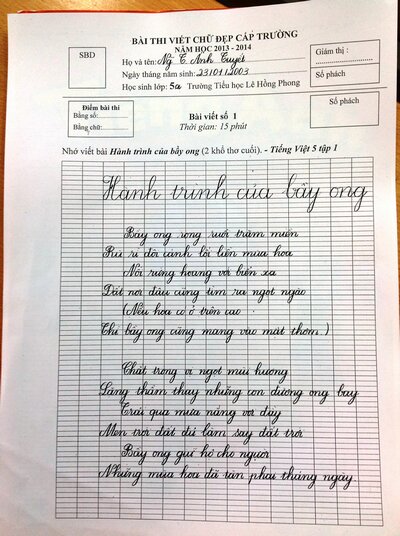 BÀI THI VIẾT CHỮ ĐẸP CẤP TRƯỜNG
NĂM HỌC 2013 - 2014
SBD
Họ và tên: Ng T. Ánh Tuyết
Giám thị :
Ngày tháng năm sinh: 23/01/2003
Học sinh lớp: 5a Trường Tiểu học Lê Hồng Phong
Số phách
Điểm bài thi
Bằng số:
Bằng chữ:
Bài viết số 1
Thời gian: 15 phút
Số phách
Nhớ viết bài Hành trình của bầy ong (2 khổ thơ cuối). - Tiếng Việt 5 tập 1
Hành trình của bầy ong
Bầy ong rong ruổi trăm miền
Rù rì đôi cánh lối liền mùa hoa
Nối rừng hoang với biển xa
Đất nơi đâu cũng tìm ra ngọt ngào
(Nếu hoa có ở trên cao
Thì bầy ong cũng mang vào mật thơm.)
Chắt trong vị ngọt mùi hương
Lặng thầm thay những con đường ong bay
Trải qua mưa nắng vơi đầy
Men trời đất đủ làm say đất trời
Bầy ong giữ hộ cho người
Những mùa hoa đã tàn phai tháng ngày